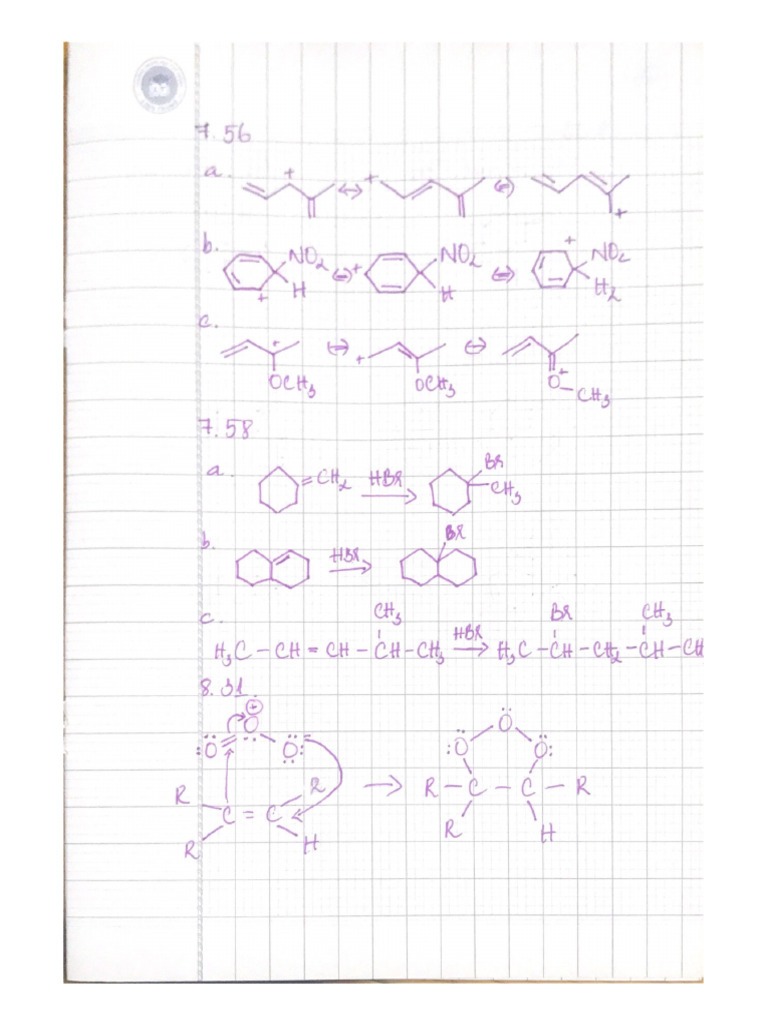 7.56
a.
+ ↔ + ↔ +
b.
NO₂ H + ↔ + NO₂ H ↔ + NO₂ H₂
c.
+ OCH₃ ↔ + OCH₃ ↔ O⁺–CH₃
7.58
a.
=CH₂ HBr → Br –CH₃
b.
HBr → Br
c.
CH₃ Br CH₃
H₃C – CH = CH – CH – CH₃ HBr → H₃C – CH – CH₂ – CH – CH
8.31.
⊕
O O
O O: :O O:
R R → R – C – C – R
C = C
R H R H